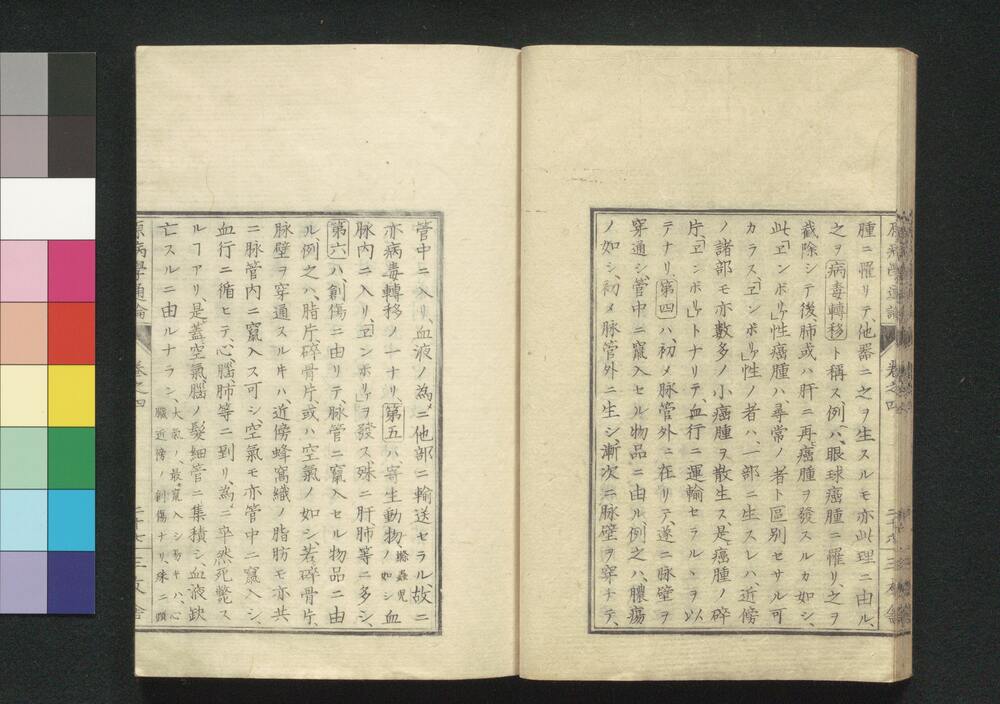 腫ニ罹リテ、他器ニ之ヲ生スルモ亦此理ニ由ル、
之ヲ病毒轉移ト稱ス、例ハ、眼球癌腫ニ罹リ、之ヲ
截除シテ後、肺或ハ肝ニ再癌腫ヲ發スルカ如シ、
此「エンボリ」性癌腫ハ、尋常ノ者ト區別セサル可
カラス、「エンボリ」性ノ者ハ、一部ニ生スレハ、近傍
ノ諸部モ亦數多ノ小癌腫ヲ散生ス、是癌腫ノ碎
片、「エンボリ」トナリテ、血行ニ運輸セラルヽヲ以
テナリ、第四ハ、初メ脉管外ニ在リテ、遂ニ脉壁ヲ
穿通シ、管中ニ竄入セル物品ニ由ル例之ハ、膿瘍
ノ如シ、初メ脉管外ニ生シ、漸次ニ脉壁ヲ穿チテ、
管中ニ入リ、血液ノ為ニ他部ニ輸送セラル、故ニ
亦病毒轉移ノ一ナリ、第五ハ寄生動物ノ如シ血
脉内ニ入リ、「エンボリ」ヲ發ス殊ニ肝肺等ニ多シ、
第六ハ創傷ニ由リテ、脉管ニ竄入セル物品ニ由
ル例之ハ、脂片、碎骨片、或ハ空氣ノ如シ、若碎骨片、
脉壁ヲ穿通スルキハ、近傍蜂窩織ノ脂肪モ亦共
ニ脉管内ニ竄入ス可シ、空氣モ亦管中ニ竄入シ、
血行ニ循ヒテ、心、腦、肺等ニ到リ、為ニ卒然死斃ス
ルヿアリ、是蓋空氣、腦ノ髮細管ニ集積シ、血液缺
亡スルニ由ルナラン、大氣ノ最竄入シ易キハ、心
臟近傍ノ創傷ナリ、殊ニ頸
原病學通論
卷之四
二十七
三友舎